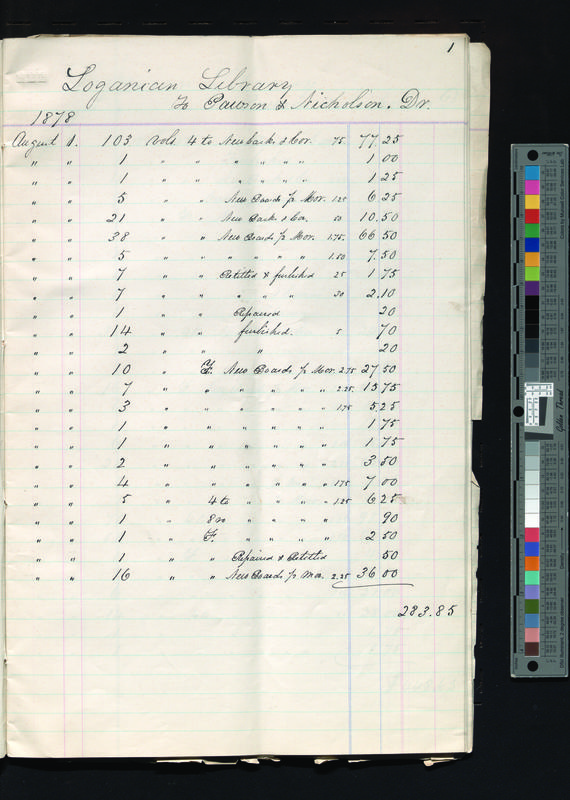 1
Loganian Library
To Pawson & Nicholson. Dr.
1878
August 1. 103 vols. 4to New backs & Cor. 75 77.25
" " 1 " " " " " " 1 00
" " 1 " " " " " " 1 25
" " 5 " " New Boards ½ Mor. 1.25 6 25
" " 21 " " New Back & Co. 50 10.50
" " 38 " " New Boards ½ Mor. 1.75. 66 50
" " 5 " " " " " " " 1.50 7.50
" " 7 " " Retitled & furbished 25 1 75
" " 7 " " " " " 30 2.10
" " 1 " " Repaired 20
" " 14 " " furbished. 5 70
" " 2 " " " 20
" " 10 " F. New Boards ½ Mor. 2.75 27 50
" " 7 " " " " " " 2.25. 15 75
" " 3 " " " " " " 1.75 5.25
" " 1 " " " " " " 1 75
" " 1 " " " " " " 1 75
" " 2 " " " " " " 3 50
" " 4 " " " " " " 1.75 7 00
" " 5 " 4to " " " " 1.25 6 25
" " 1 " 8vo " " " " 90
" " 1 " F. " " " " 2 50
" " 1 " " Repaired & Retitled 50
" " 16 " " New Boards ½ Mor. 2.25 36 00
283.85